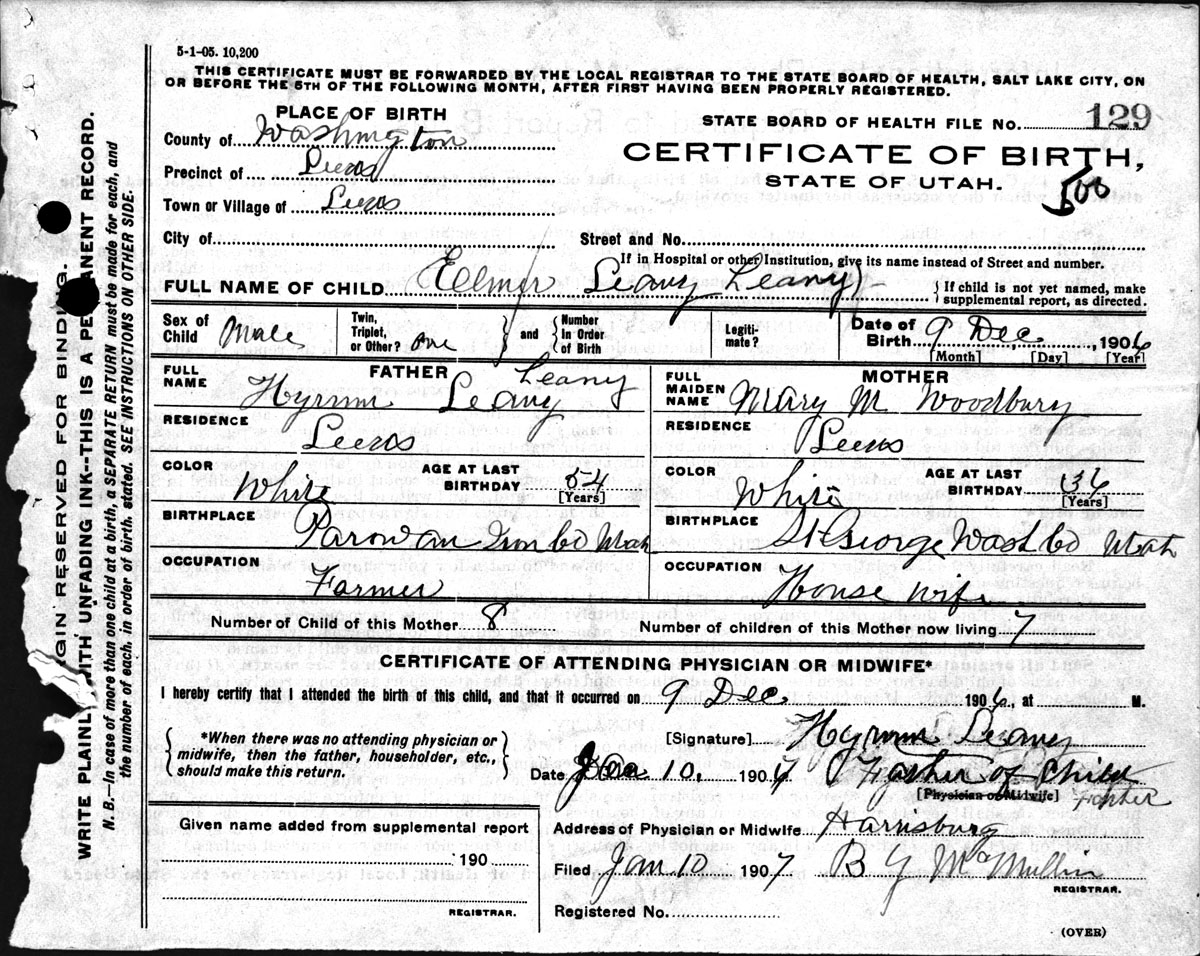 5-1-05. 10,200
THIS CERTIFICATE MUST BE FORWARDED BY THE LOCAL REGISTRAR TO THE STATE BOARD OF HEALTH, SALT LAKE CITY, ON
OR BEFORE THE 5TH OF THE FOLLOWING MONTH, AFTER FIRST HAVING BEEN PROPERLY REGISTERED.
PLACE OF BIRTH
County of Washington
Precinct of Leeds
Town or Village of Leeds
City of
STATE BOARD OF HEALTH FILE No. 129
CERTIFICATE OF BIRTH,
STATE OF UTAH.
500
Street and No.
If in Hospital or other Institution, give its name instead of Street and number.
FULL NAME OF CHILD Ellmer Leany Leany
If child is not yet named, make
supplemental report, as directed.
Sex of Child Male
Twin, Triplet, or Other? one
and
Number In Order of Birth
Legiti- mate?
Date of Birth 9 Dec, 1906
[Month] [Day] [Year]
FATHER
FULL NAME Hyrum Leany Leany
RESIDENCE
Leeds
COLOR White
AGE AT LAST BIRTHDAY 54
[Years]
BIRTHPLACE
Parowan Iron Co Utah
OCCUPATION
Farmer
MOTHER
FULL MAIDEN NAME Mary M Woodbury
RESIDENCE
Leeds
COLOR White
AGE AT LAST BIRTHDAY 36
[Years]
BIRTHPLACE
St George Wash Co Utah
OCCUPATION
House wife
Number of Child of this Mother 8
Number of children of this Mother now living 7
CERTIFICATE OF ATTENDING PHYSICIAN OR MIDWIFE*
I hereby certify that I attended the birth of this child, and that it occurred on 9 Dec 1906, at M.
*When there was no attending physician or
midwife, then the father, householder, etc.,
should make this return.
[Signature] Hyrum Leany
Date 10, 1907 Father of Child
[Physician or Midwife] Father
Given name added from supplemental report
190
REGISTRAR.
Address of Physician or Midwife Harrisburg
Filed Jan 10 1907 B Y McMullin
REGISTRAR.
Registered No.
(OVER)
GIN RESERVED FOR BINDING.
WRITE PLAINL WITH UNFADING INK--THIS IS A PE ANENT RECORD.
N. B.—In case of more than one child at a birth, a SEPARATE RETURN must be made for each, and
the number of each, in order of birth, stated. SEE INSTRUCTIONS ON OTHER SIDE.